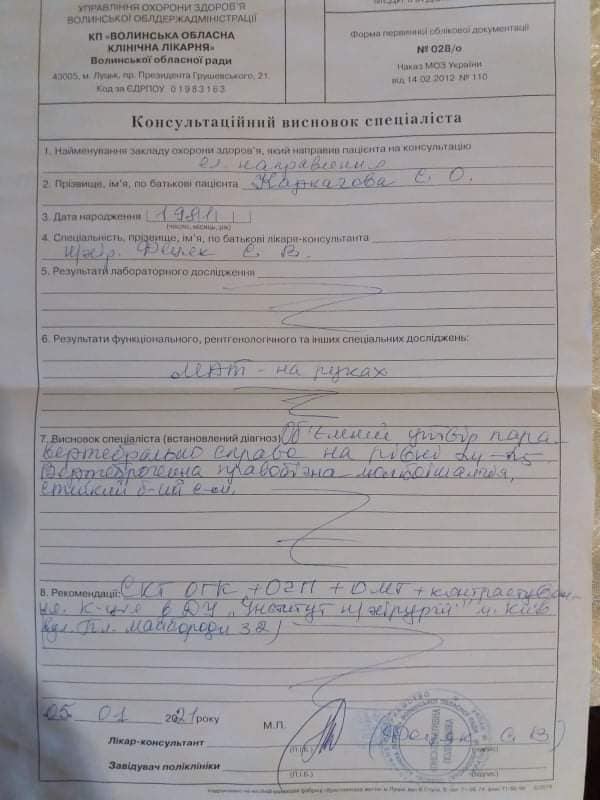 УПРАВЛІННЯ ОХОРОНИ ЗДОРОВ'Я
ВОЛИНСЬКОЇ ОБЛДЕРЖАДМІНІСТРАЦІЇ
КП «ВОЛИНСЬКА ОБЛАСНА
КЛІНІЧНА ЛІКАРНЯ»
Волинської обласної ради
43005, м. Луцьк, пр. Президента Грушевського, 21.
Код за ЄДРПОУ 01983163
Форма первинної облікової документації
№ 028/о
Наказ МОЗ України
від 14.02.2012 № 110
Консультаційний висновок спеціаліста
1. Найменування закладу охорони здоров'я, який направив пацієнта на консультацію
ел. направлення
2. Прізвище, ім'я, по батькові пацієнта С. О.
3. Дата народження 1981
(число, місяць, рік)
4. Спеціальність, прізвище, ім'я, по батькові лікаря-консультанта
н/хір. С. В.
5. Результати лабораторного дослідження
6. Результати функціонального, рентгенологічного та інших спеціальних досліджень:
на руках
7. Висновок спеціаліста (встановлений діагноз) Об'ємний утвір пара-
вертебрально справа на рівні
Вертеброгенна правобічна люмбоішіалгія,
стійкий б-ий с-м.
8. Рекомендації: СКТ ОГК + ОЧП + ОМТ + контрастуван-
ня. К-ція в ДУ „Інститут н/хірургії" м. Київ
вул. Пл. Майбороди 32)
05 01 2021 року
М.П.
Лікар-консультант
(П.І.Б.)
(підпис)
Завідувач поліклініки
(П.І.Б.)
(підпис)